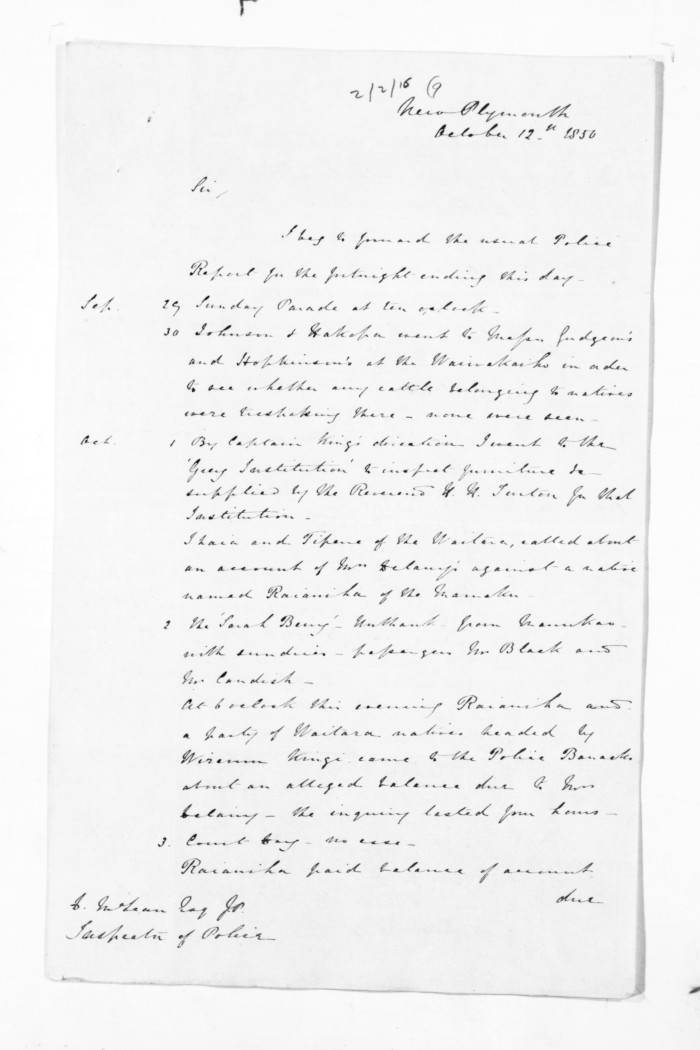 2/2/16 (9
New Plymouth
October 12th 1850
Sir,
I beg to forward the usual Police
Report for the fortnight ending this day -
Sep. 29 Sunday Parade at ten oclock -
30 Johnson & Hakopa went to Messrs Gudgeon's
and Hopkinson's at the Waiwakaiho in order
to see whether any cattle belonging to natives
were trespassing there - none were seen -
Oct. 1 By Captain King's direction I went to the
'Grey Institution' to inspect furniture &c
supplied by the Reverend H. H. Turton for that
Institution -
Ihaia and Tipene of the Waitara, called about
an account of Mrs Delamy's against a native
named Raianiha of the Mamaku -
2 The 'Sarah Berry' - Unthank - from Manukau -
with sundries - passengers Mr Black and
Mr Candish -
At 6 oclock this evening Raianiha and
a party of Waitara natives headed by
Wiremu Kingi came to the Police Barracks
about an alleged balance due to Mrs
Delamy - the inquiry lasted four hours -
3. Court Day - no case -
Raianiha paid balance of account
due
D. McLean Esq JP.
Inspector of Police